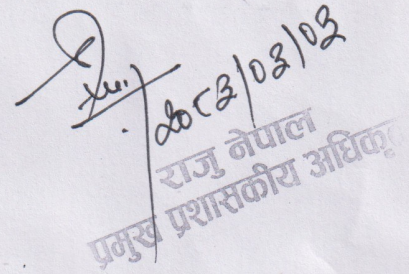 २०८३/०३/०३
राजु नेपाल
प्रमुख प्रशासकीय अधिकृत